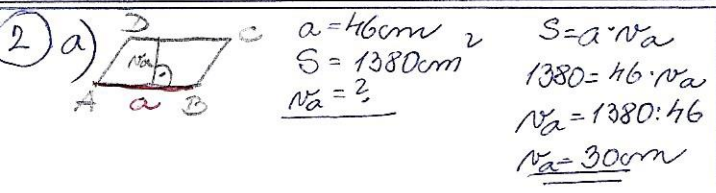 2) a) D C
v_a
A a B
a = 46cm
S = 1380cm²
v_a = ?
S = a · v_a
1380 = 46 · v_a
v_a = 1380 : 46
v_a = 30cm